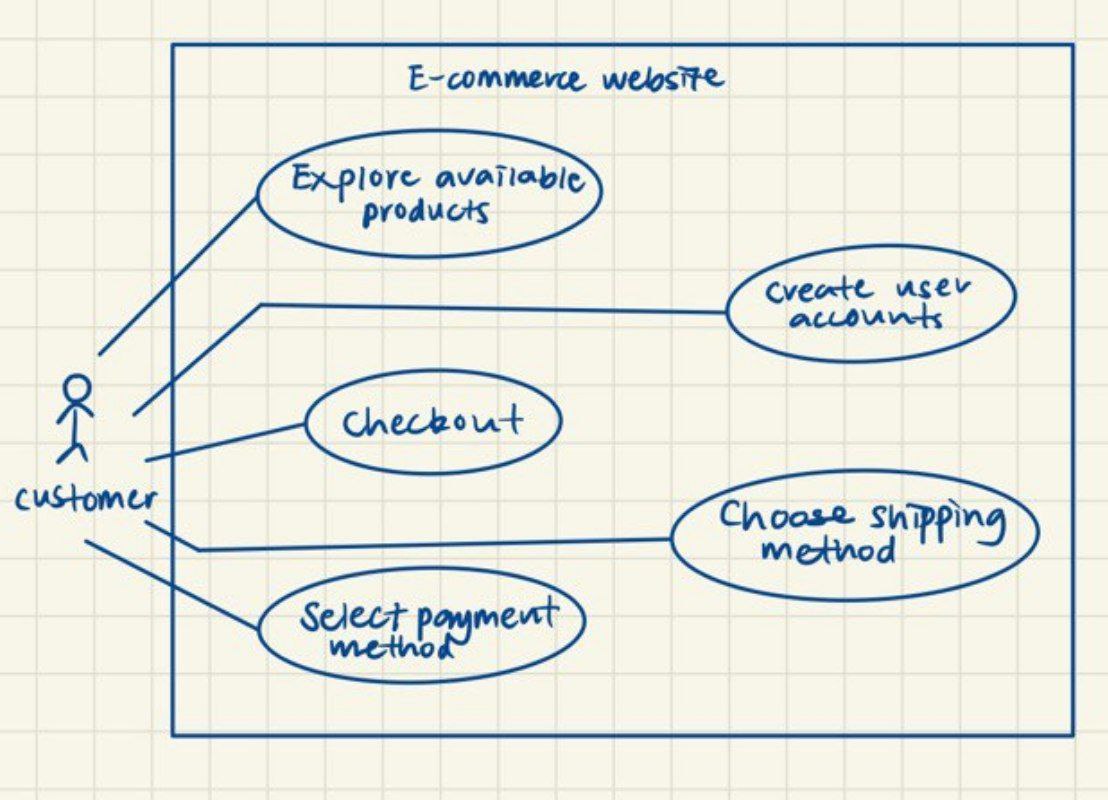 E-commerce website
Explore available
products
create user
accounts
checkout
customer
Choose shipping
method
Select payment
method